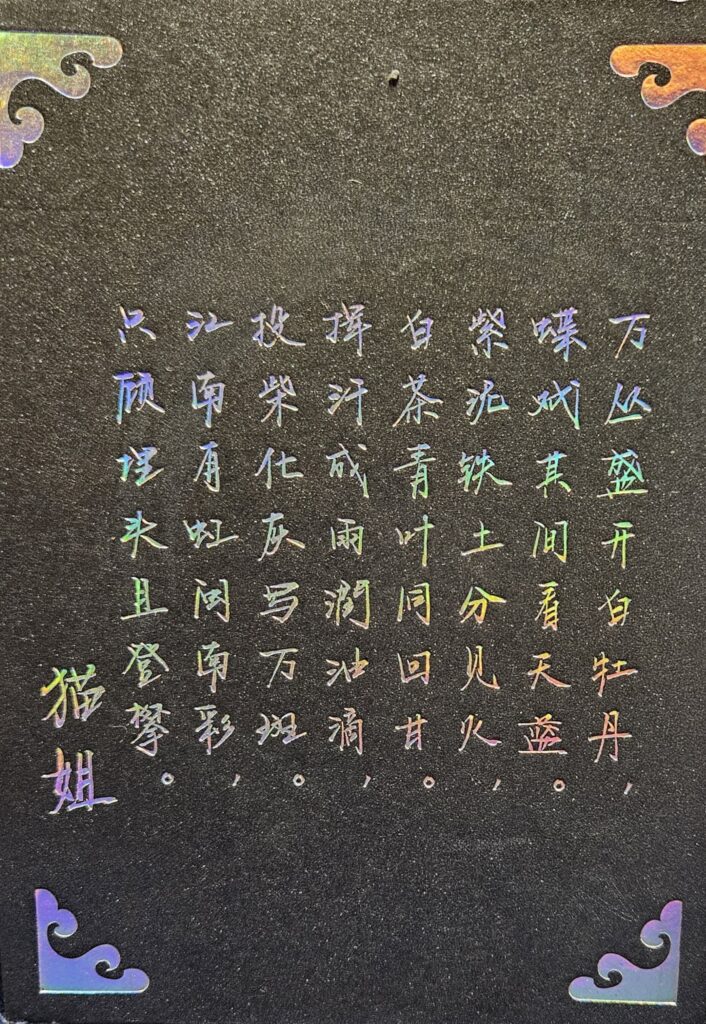 万丛盛开白牡丹，
蝶戏其间看天蓝。
紫泥铁土分见火，
白茶青叶同回甘。
挥汗成雨润油滴，
投柴化灰写万斑。
江南有虹闽南彩，
只顾埋头且登攀。
猫姐